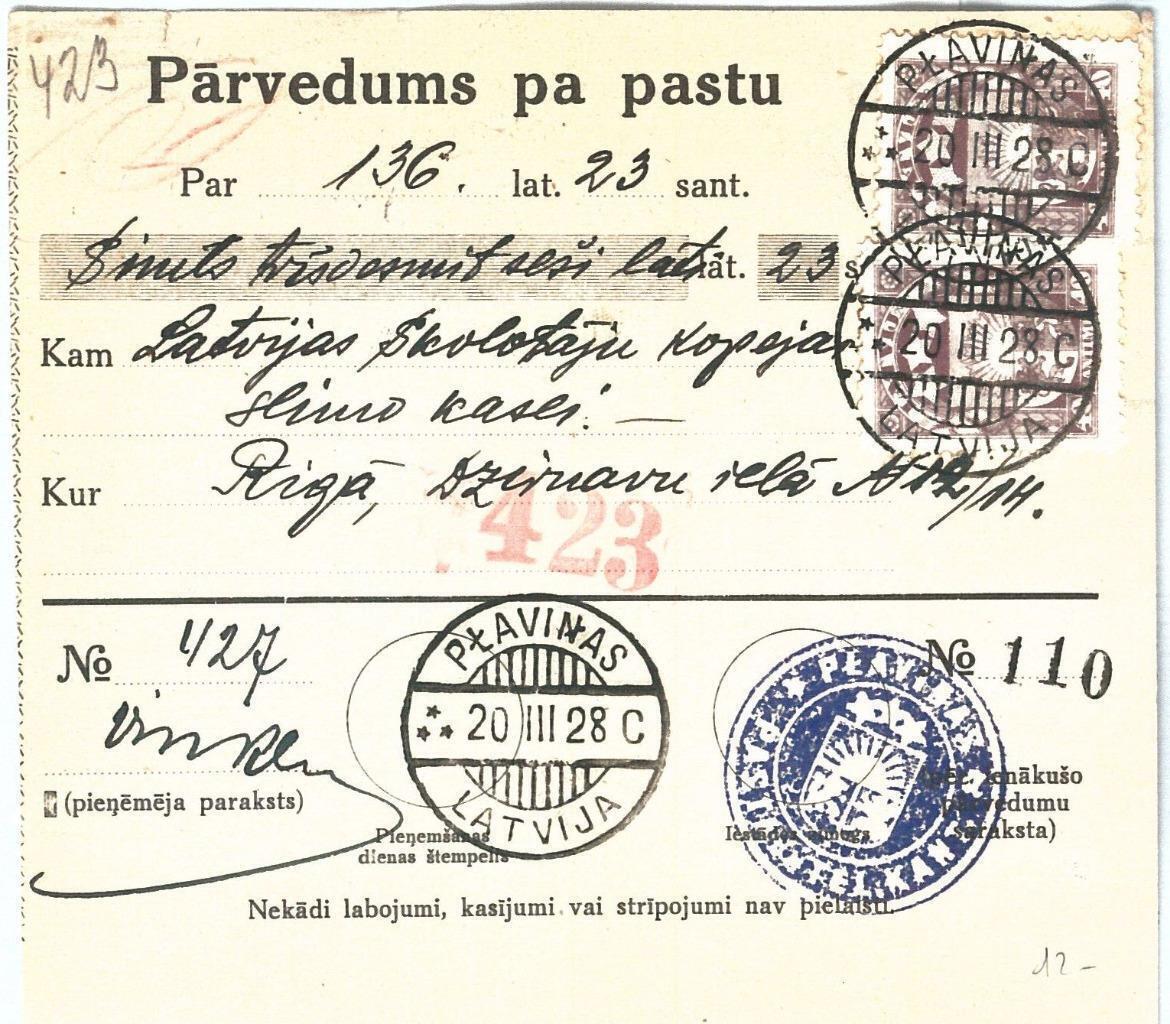 423
Pārvedums pa pastu
Par 136. lat. 23 sant.
Simts trīsdesmit seši lati lat. 23 s
Kam Latvijas Skolotāju kopejai
slimo kasei. —
Kur Rigā, Dzirnavu ielā № 12/14.
423
PĻAVIŅAS
20 III 28 C
LATVIJA
PĻAVIŅAS
20 III 28 C
LATVIJA
No 427
No 110
PĻAVIŅAS
20 III 28 C
LATVIJA
(pieņēmēja paraksts)
Pieņemšanas
dienas štempelis
Iestādes zīmogs
(pēc ienākušo
pārvedumu
saraksta)
Nekādi labojumi, kasījumi vai strīpojumi nav pielaisti.
12-